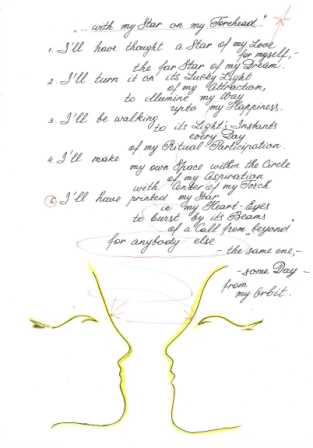 "...with my Star on my Forehead"
1. I'll have thought a Star of my Love
for myself,-
the far Star of my Dream.
2. I'll turn it on its Lucky Light
of my Attraction,
to illumine my Way
upto my Happiness.
3. I'll be walking
to its Light; Instants
every Day
of my Ritual Participation.
4. I'll make
my own Space within the Circle
of my Aspiration
with Center of my Torch
5. I'll have printed my Star
in my Heart-Eyes
to burst by its Beams
of a Call from beyond"
for anybody else
- the same one,-
-some Day -
from
my Orbit.